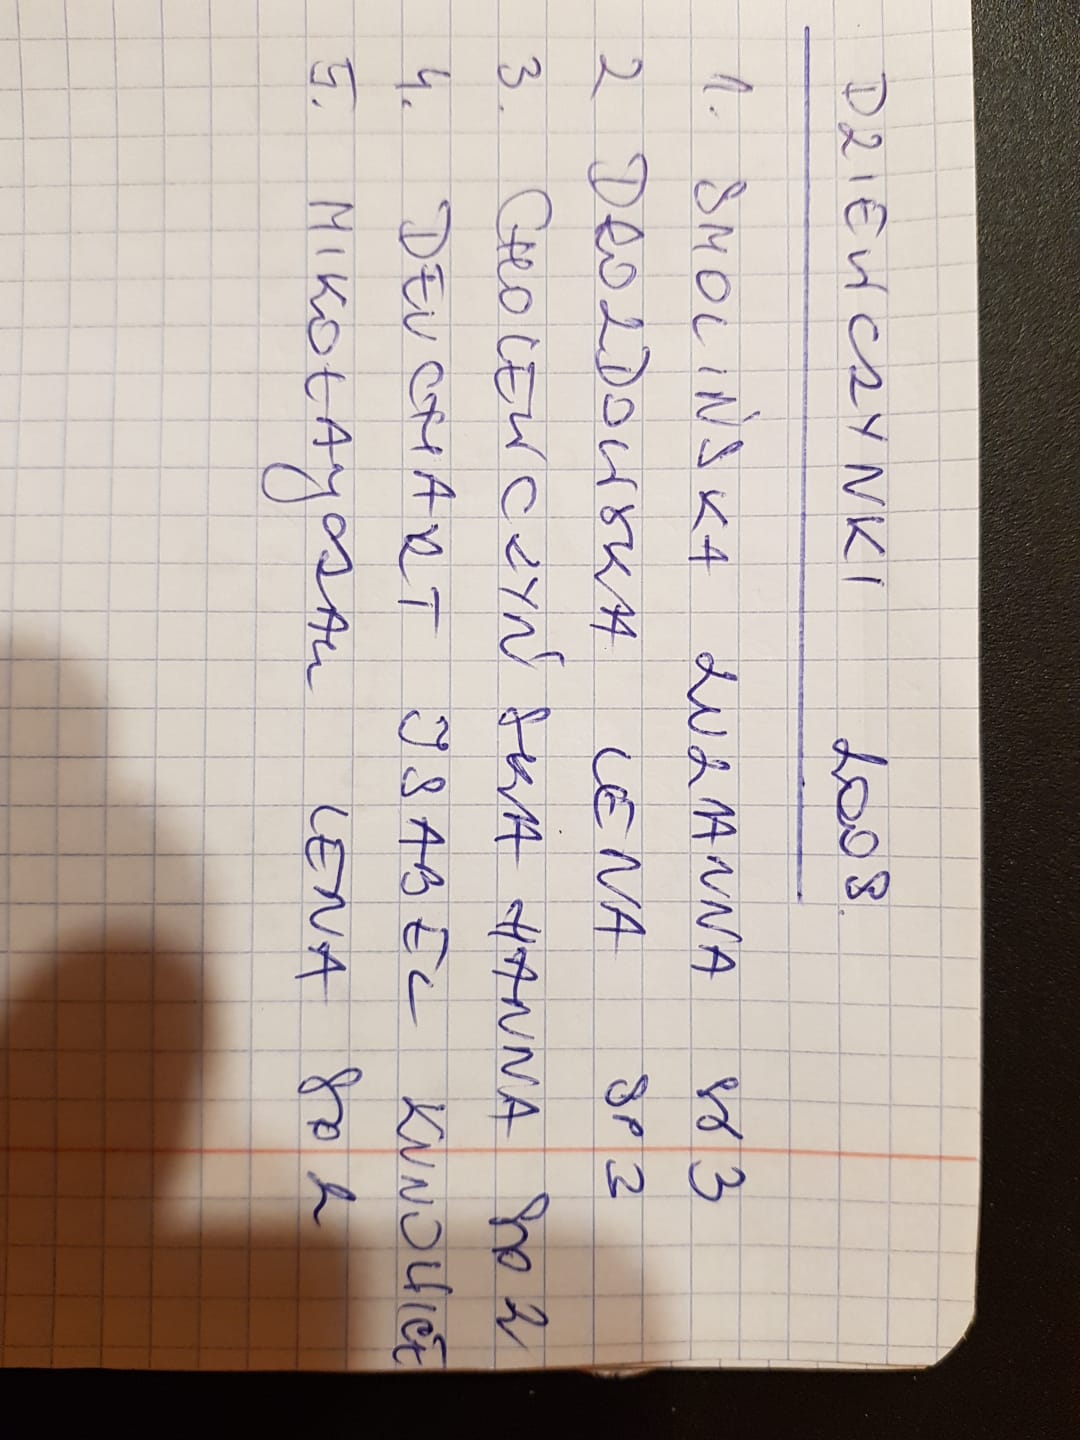 DZIEWCZYNKI 2008.
1. SMOLIŃSKA ZUZANNA SP 3
2 DROZDOWSKA LENA SP 3
3. CHOLEWCZYŃSKA HANNA SP 2
4. DEUCHART ISABEL KUNOWICE
5. MIKOŁAJCZAK LENA SP 2